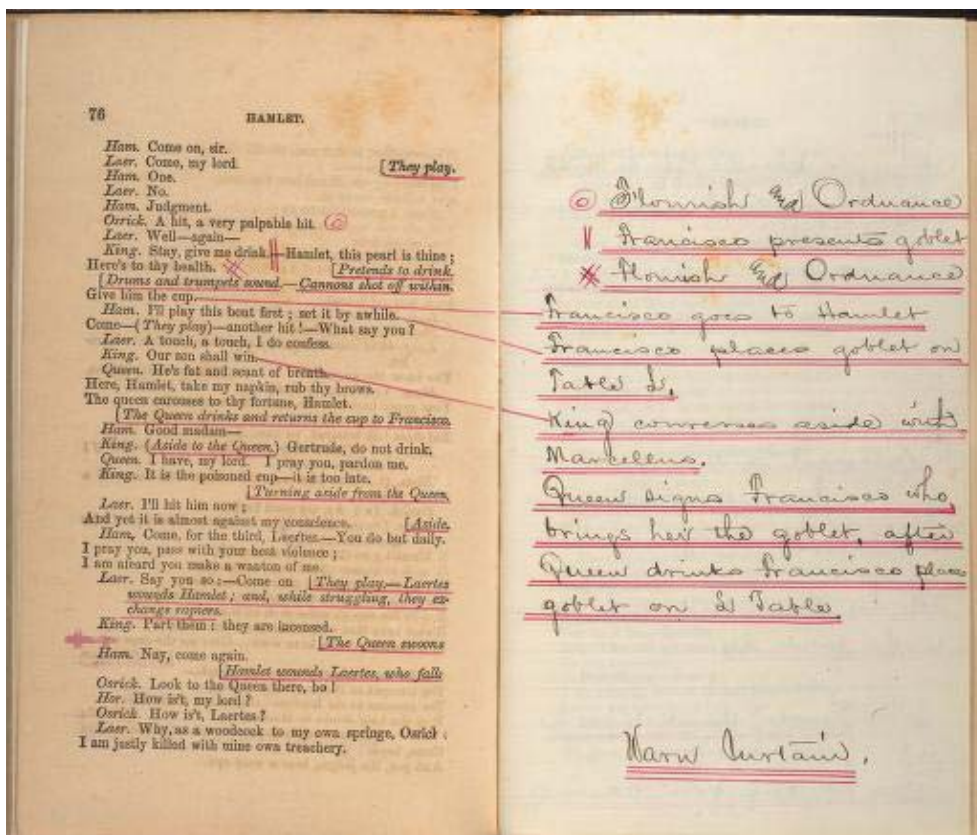 76 HAMLET.
Ham. Come on, sir.
Laer. Come, my lord. [They play.
Ham. One.
Laer. No.
Ham. Judgment.
Osrick. A hit, a very palpable hit.
Laer. Well—again—
King. Stay, give me drink.—Hamlet, this pearl is thine;
Here's to thy health. [Pretends to drink.
[Drums and trumpets sound.—Cannons shot off within.
Give him the cup.
Ham. I'll play this bout first; set it by awhile.
Come—(They play)—another hit!—What say you?
Laer. A touch, a touch, I do confess.
King. Our son shall win.
Queen. He's fat and scant of breath.
Here, Hamlet, take my napkin, rub thy brows.
The queen carouses to thy fortune, Hamlet.
[The Queen drinks and returns the cup to Francisco.
Ham. Good madam—
King. (Aside to the Queen.) Gertrude, do not drink.
Queen. I have, my lord. I pray you, pardon me.
King. It is the poisoned cup—it is too late.
[Turning aside from the Queen.
Laer. I'll hit him now;
And yet it is almost against my conscience. [Aside.
Ham. Come, for the third, Laertes.—You do but dally.
I pray you, pass with your best violence;
I am afeard you make a wanton of me.
Laer. Say you so:—Come on [They play.—Laertes
wounds Hamlet; and, while struggling, they ex-
change rapiers.
King. Part them: they are incensed.
[The Queen swoons
Ham. Nay, come again.
[Hamlet wounds Laertes, who falls
Osrick. Look to the Queen there, ho!
Hor. How is't, my lord?
Osrick. How is't, Laertes?
Laer. Why, as a woodcock to my own springe, Osrick:
I am justly killed with mine own treachery.
Flourish and Ordnance
Francisco presents goblet
Flourish and Ordnance
Francisco goes to Hamlet
Francisco places goblet on
Table L.
King converses aside with
Marcellus.
Queen signs Francisco who,
brings her the goblet, after
Queen drinks Francisco places
goblet on L Table
Warn Curtain.